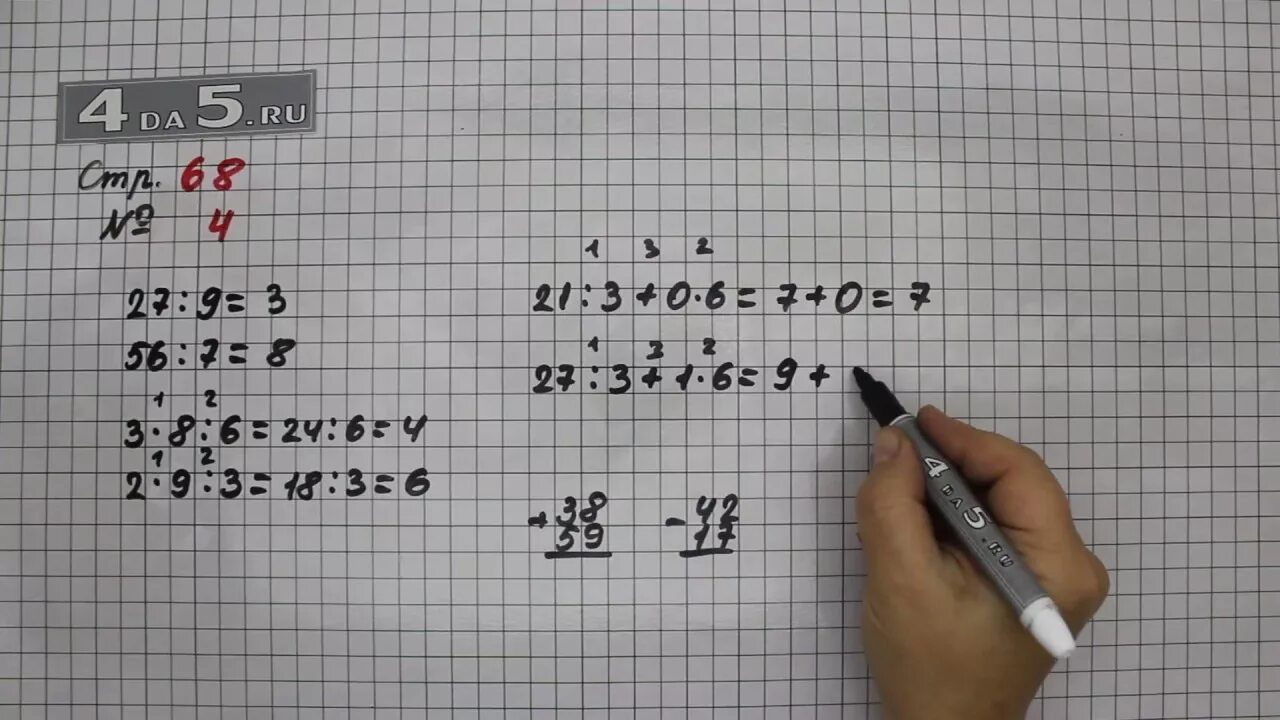 4 DA 5.RU
Стр. 68
№ 4
27:9= 3
56:7= 8
1 2
3·8:6=24:6=4
1 2
2·9:3=18:3=6
1 3 2
21:3+0·6=7+0=7
1 3 2
27:3+1·6=9+
+38
59
-42
17
4 DA 5.RU